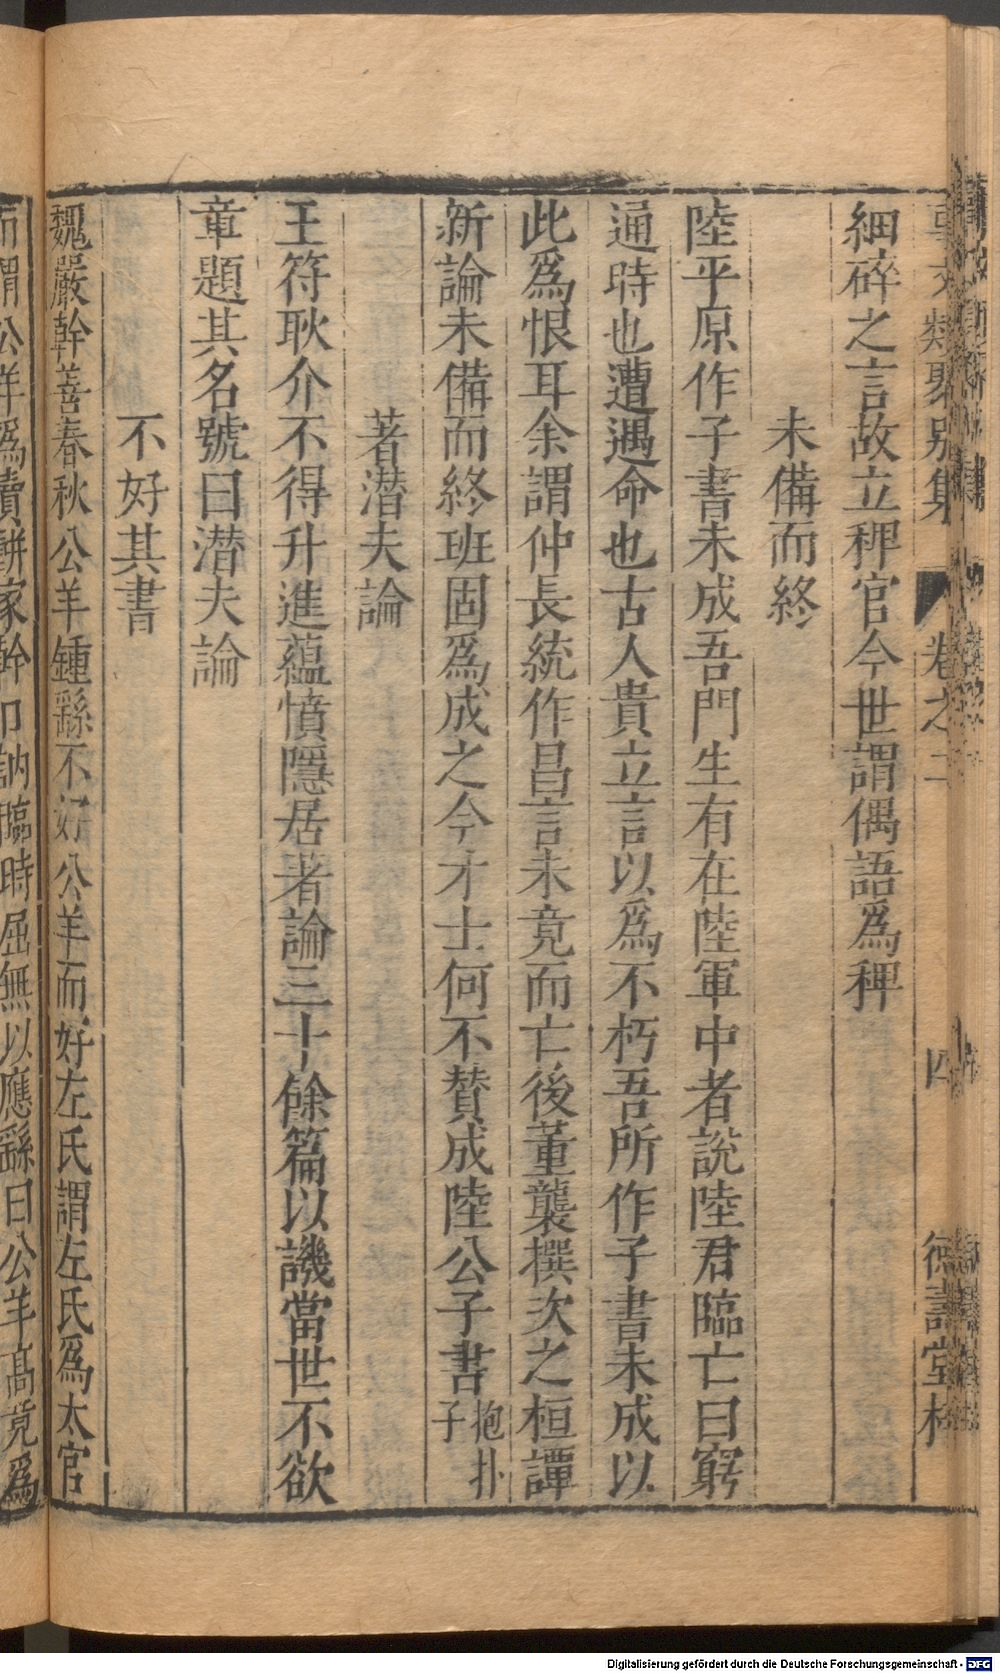 事文類聚別集 卷之二 四 德壽堂梓
細碎之言故立稗官今世謂偶語爲稗
未備而終
陸平原作子書未成吾門生有在陸軍中者說陸君臨亡曰窮
通時也遭遇命也古人貴立言以爲不朽吾所作子書未成以
此爲恨耳余謂仲長統作昌言未竟而亡後董襲撰次之桓譚
新論未備而終班固爲成之今才士何不贊成陸公子書抱扑子
著潜夫論
王符耿介不得升進蘊憤隱居者論三十餘篇以譏當世不欲
章題其名號曰潜夫論
不好其書
魏嚴幹善春秋公羊鍾繇不好公羊而好左氏謂左氏爲太官
而謂公羊爲賣餅家幹口訥臨時屈無以應繇曰公羊高竟爲
Digitalisierung gefördert durch die Deutsche Forschungsgemeinschaft - DFG